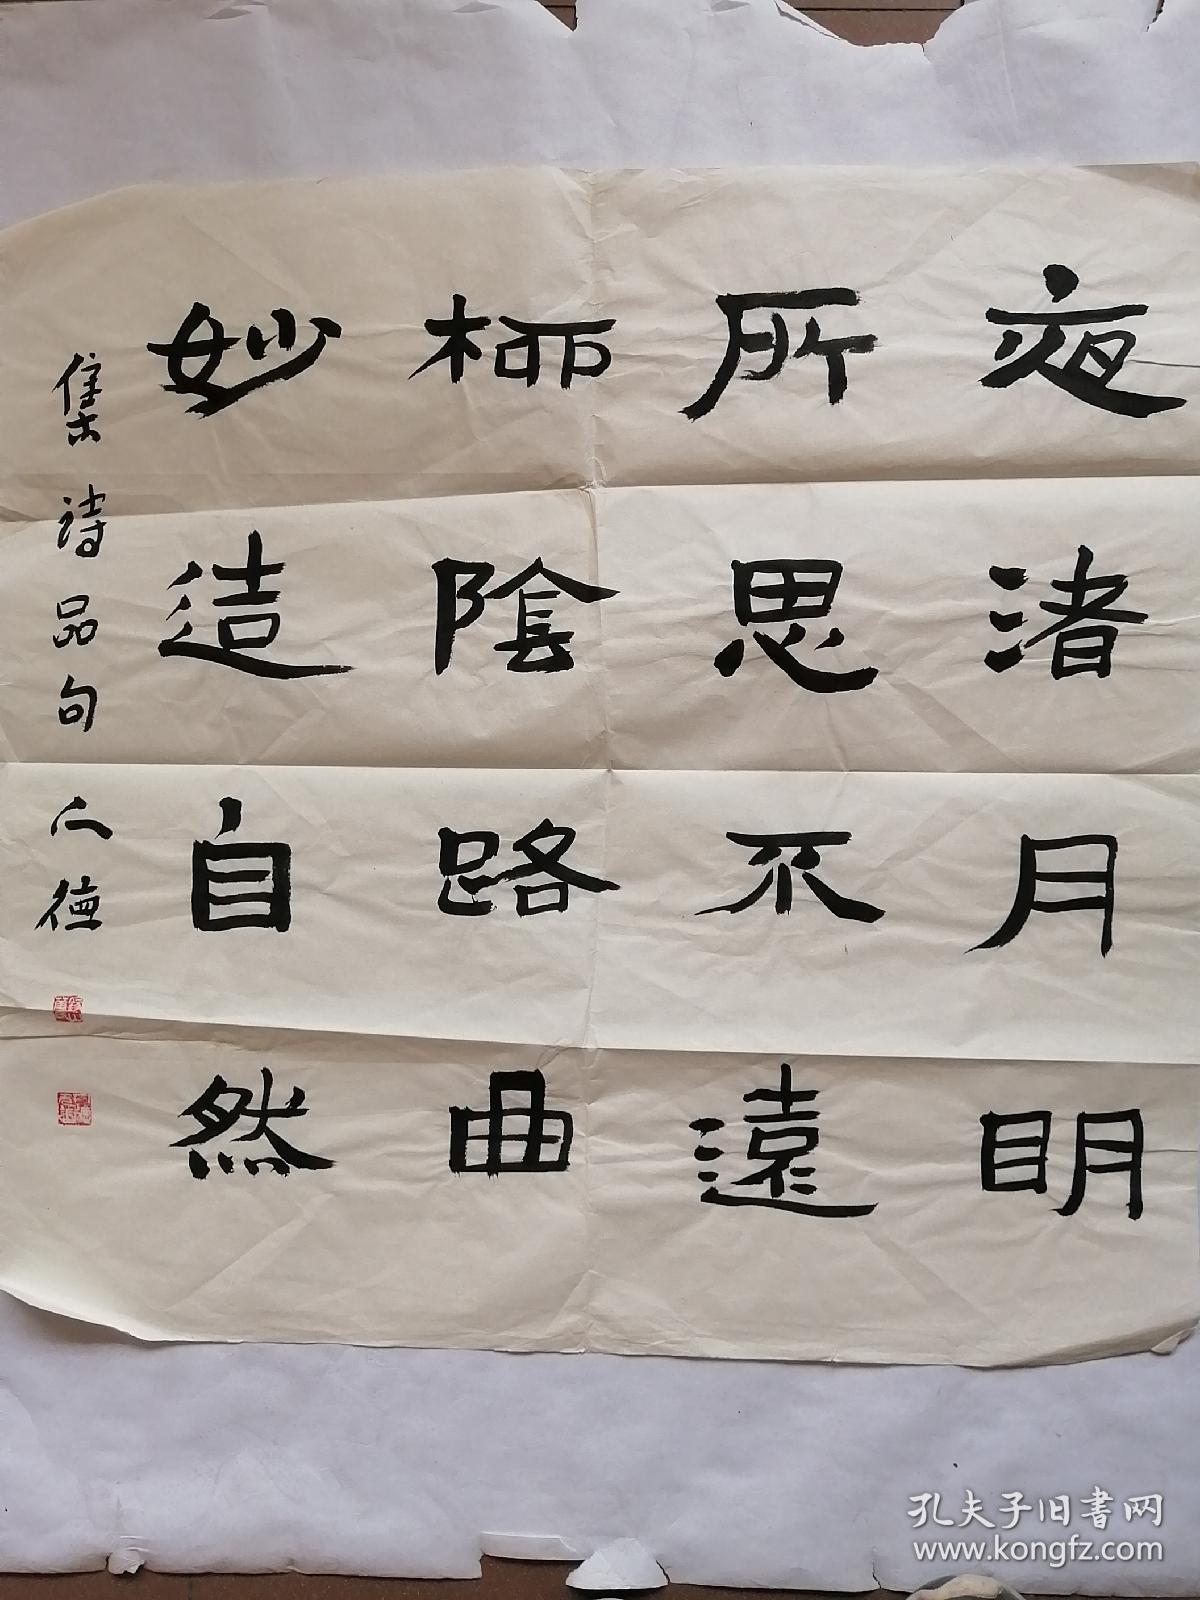 夜渚月明
所思不遠
柳陰路曲
妙造自然
集詩品句
仁德
孔夫子旧书网
www.kongfz.com